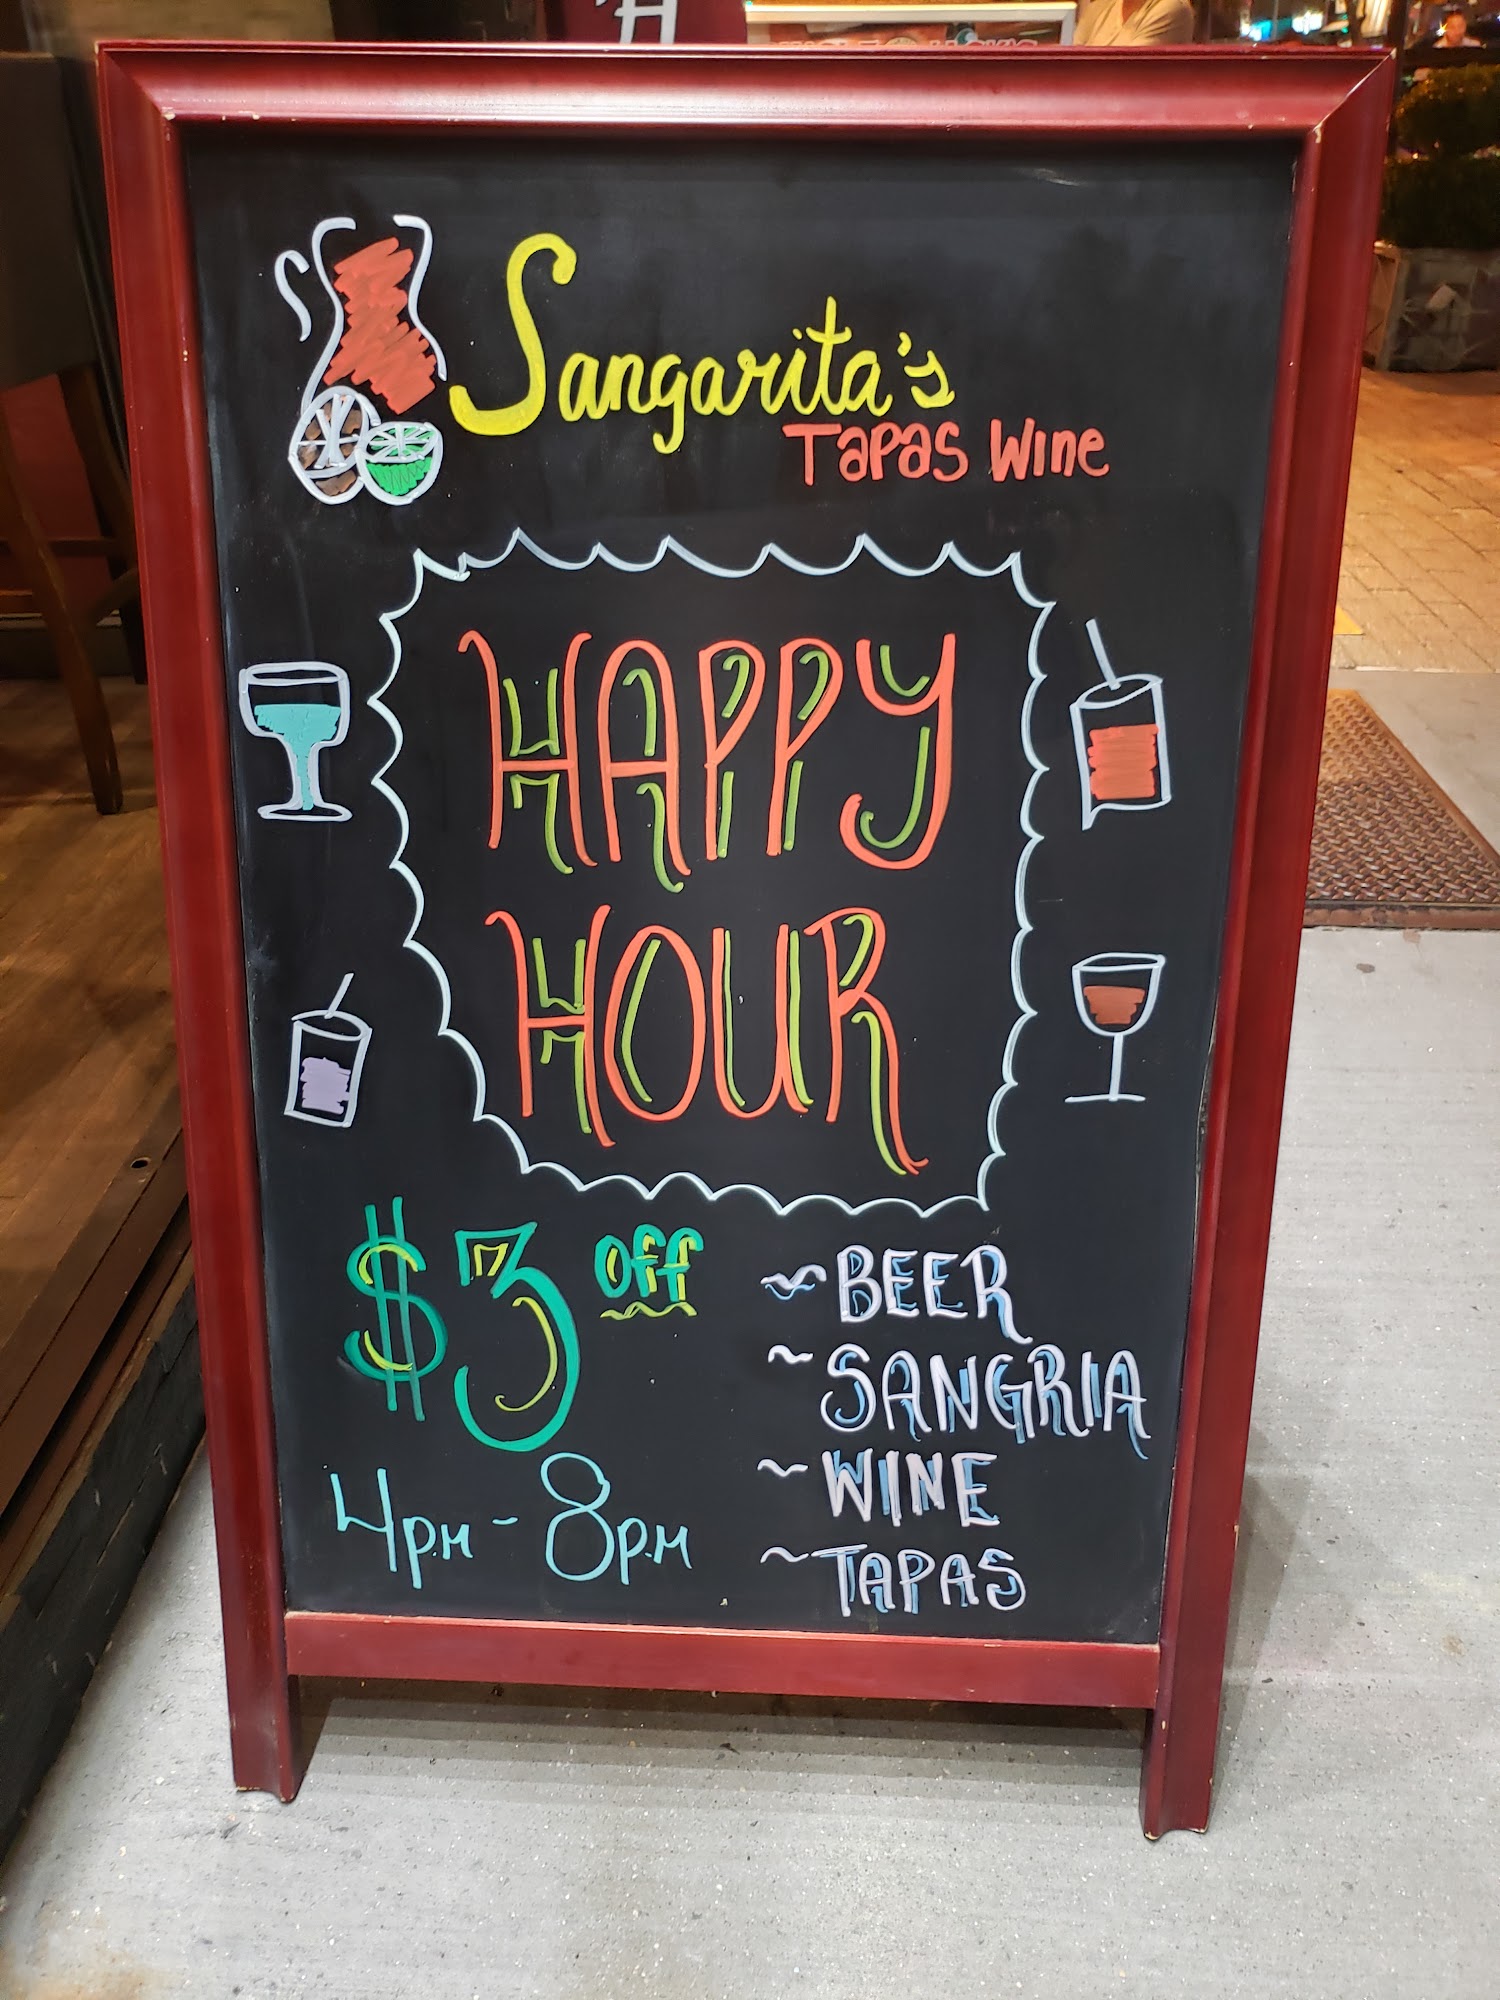 Sangarita's
Tapas Wine
HAPPY
HOUR
$3 off
4P.M - 8P.M
~ BEER
~ SANGRIA
~ WINE
~ TAPAS